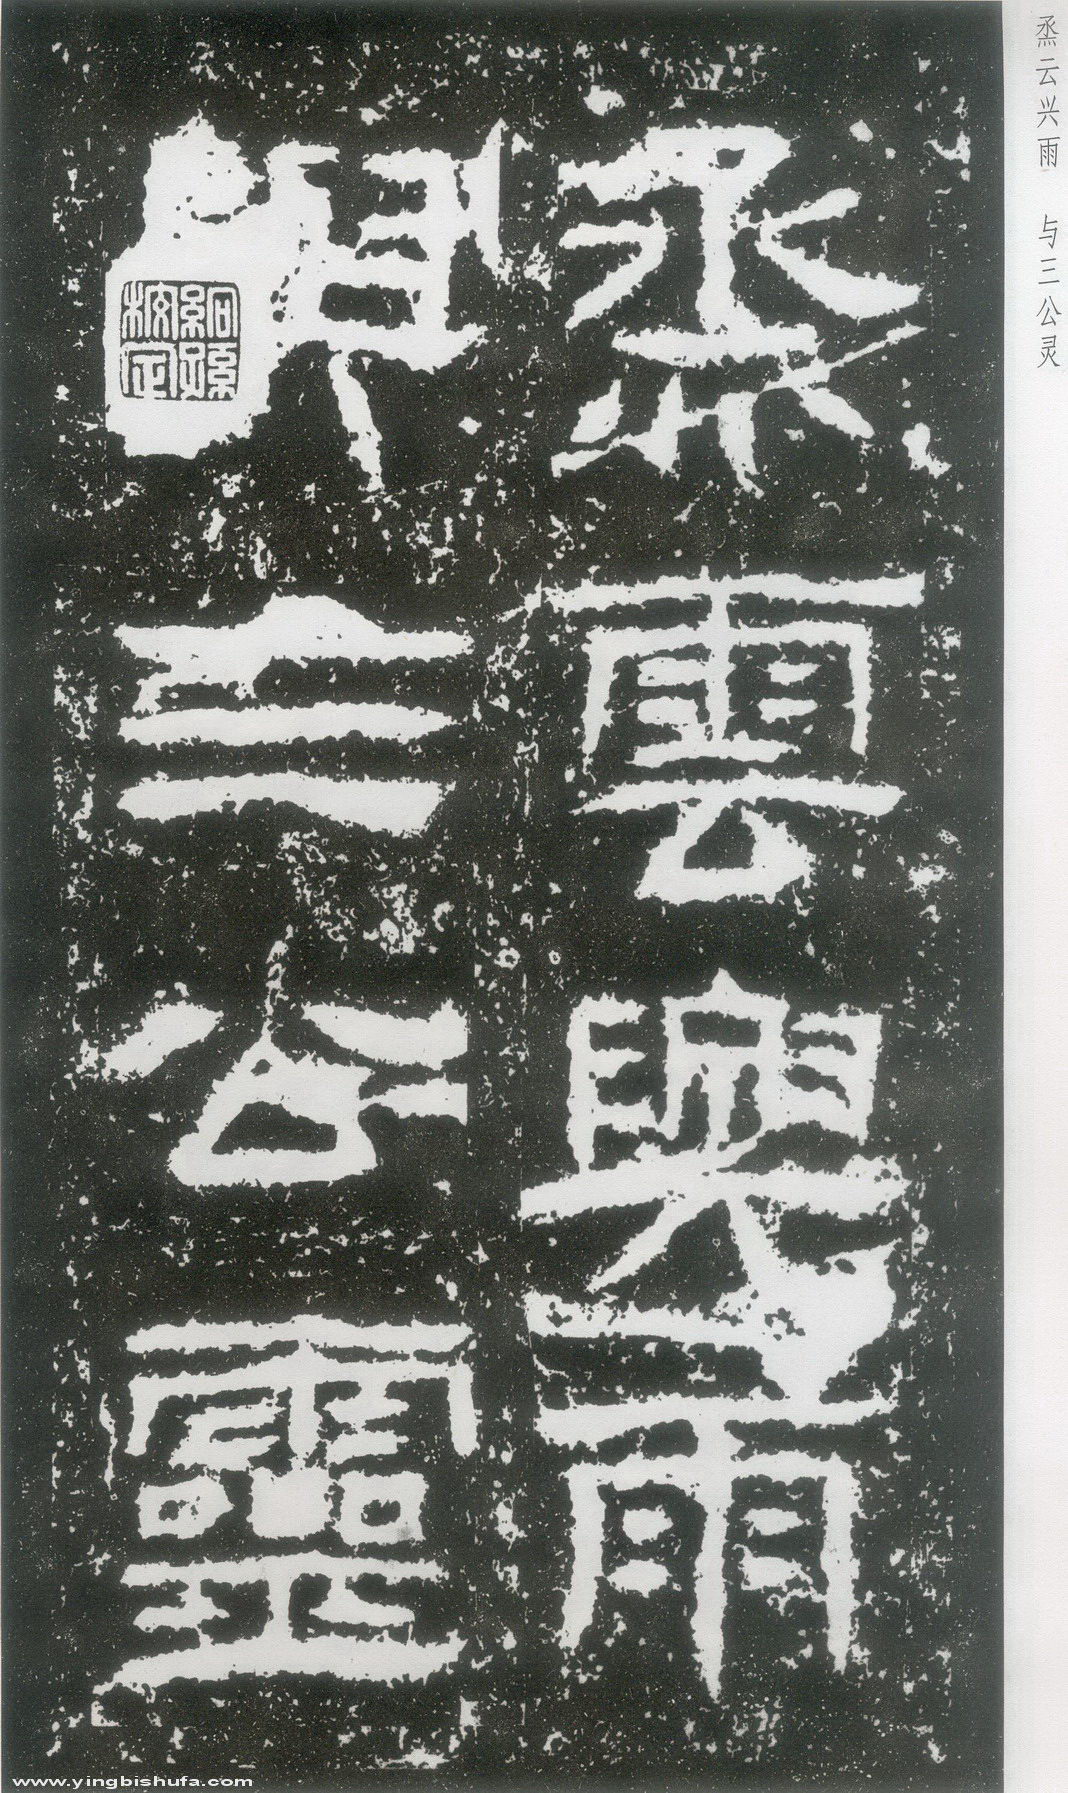 烝云兴雨 与三公灵
烝雲興雨
與三公靈
www.yingbishufa.com